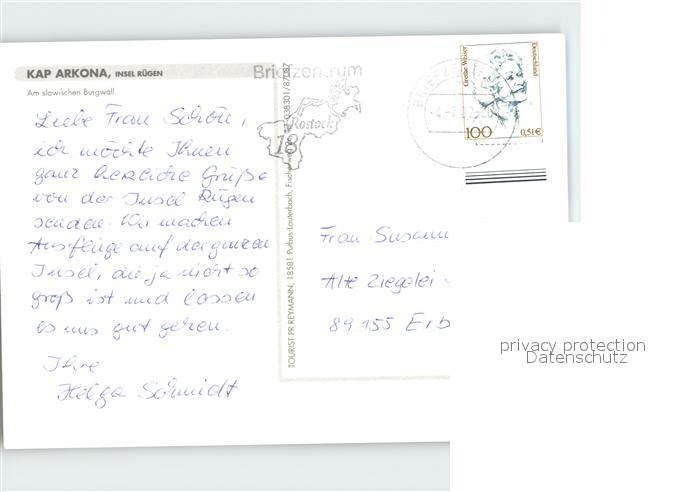 KAP ARKONA, INSEL RÜGEN
Am slawischen Burgwall
Liebe Frau Schön,
ich möchte Ihnen
ganz herzliche Grüße
von der Insel Rügen
senden. Wir machen
Ausflüge auf der ganzen
Insel, die ja nicht so
groß ist und lassen
es uns gut gehen.
Ihre
Helga Schmidt
TOURIST PR REYMANN, 18581 Putbus-Lauterbach, Fischerweg 038301/87087
Briefzentrum
Rostock
18
BRIEFZENTRUM
Grethe Weiser
Deutschland
100
0,51€
Frau Susann
Alte Ziegelei
89155 Erb
privacy protection
Datenschutz